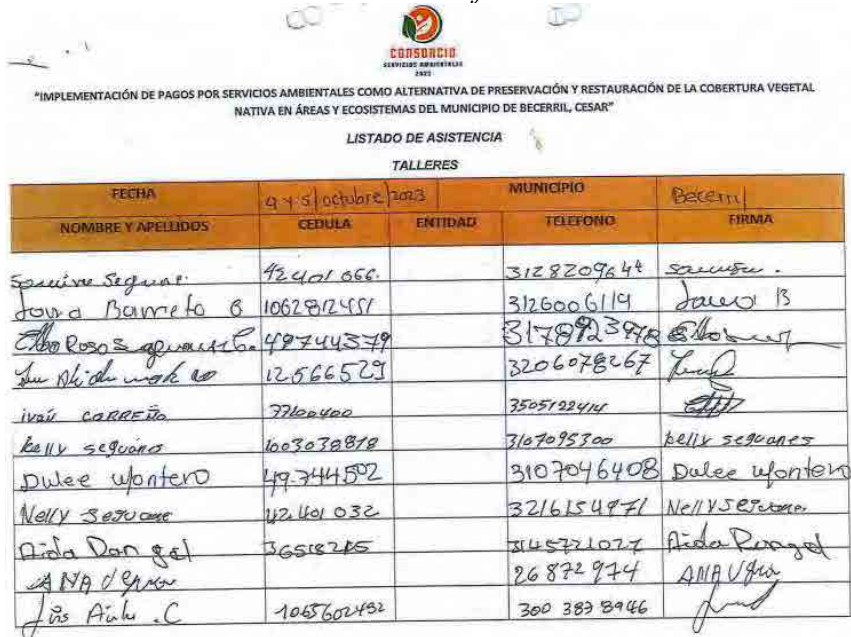 CONSORCIO
SERVICIOS AMBIENTALES
2023
"IMPLEMENTACIÓN DE PAGOS POR SERVICIOS AMBIENTALES COMO ALTERNATIVA DE PRESERVACIÓN Y RESTAURACIÓN DE LA COBERTURA VEGETAL
NATIVA EN ÁREAS Y ECOSISTEMAS DEL MUNICIPIO DE BECERRIL, CESAR"
LISTADO DE ASISTENCIA
TALLERES
FECHA 4 y 5/octubre/2023 MUNICIPIO Becerril
NOMBRE Y APELLIDOS CEDULA ENTIDAD TELEFONO FIRMA
42401066. 3128209644
Barreto B 1062812451 3126006119 B
Rosa 49744379
12.566529 3206078267
ivan CARREÑO 77100400 3505122414
kelly seguanes 1003038818 3107095300 kelly seguanes
Dulce Montero 49.744502 3107046408 Dulce Montero
Nelly 42.401032 3216154971 Nelly
Aida Rangel 36518285 3145721027 Aida Rangel
ANA 26872974 ANA
Luis .C 1065602432 300 3878946